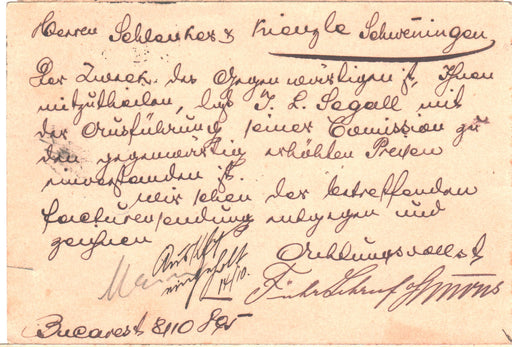 Herren Schlenker & Kienzle Schweningen
Der Zweck des Gegenwärtigen ist, Ihnen
mitzutheilen, daß J. L. Segall mit
der Ausführung seiner Comission zu
den gegenwärtig erhöhten Preisen
einverstanden ist.
Wir sehen der betreffenden
Facturensendung entgegen und
zeichnen
Achtungsvollst
eingeholt
14/10.
Bucarest 8/10 895